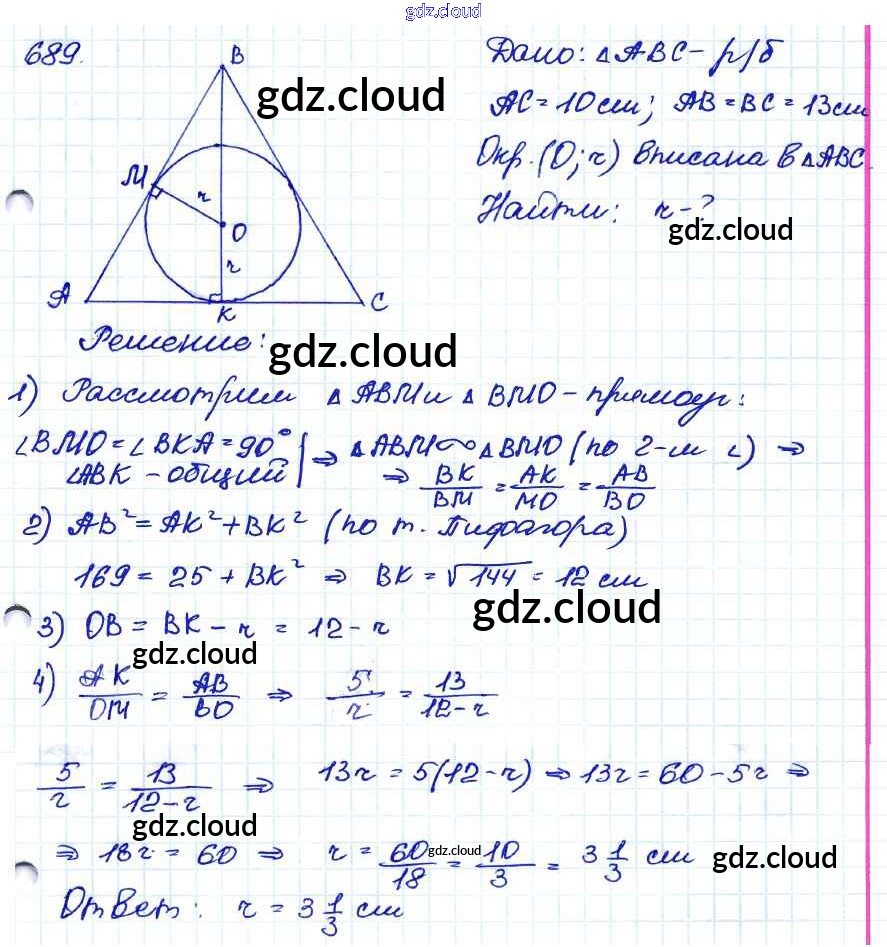 gdz.cloud
689.
B
gdz.cloud
M
r
O
r
A
K
C
Дано: △ABC – р/б
AC = 10 см; AB = BC = 13 см
Окр. (O; r) вписана в △ABC.
Найти: r - ?
gdz.cloud
Решение:
gdz.cloud
1) Рассмотрим △ABM и △BMO – прямоуг:
∠BMO = ∠BKA = 90° | ⇒ △ABM ∾ △BMO (по 2-м ∠) ⇒
∠ABK – общий | ⇒ BK/BM = AK/MO = AB/BO
2) AB² = AK² + BK² (по т. Пифагора)
169 = 25 + BK² ⇒ BK = √144 = 12 см
gdz.cloud
3) OB = BK – r = 12 – r
gdz.cloud
4) AK/OM = AB/BO ⇒ 5/r = 13/12-r
5/r = 13/12-r ⇒ 13r = 5(12 - r) ⇒ 13r = 60 - 5r ⇒
gdz.cloud
⇒ 18r = 60 ⇒ r = 60/18 = 10/3 = 3 1/3 см
gdz.cloud
gdz.cloud
Ответ: r = 3 1/3 см